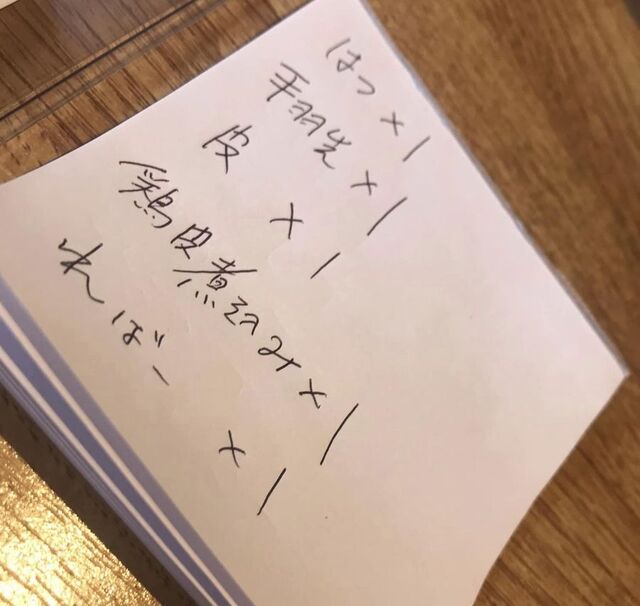 はつ×1
手羽先×1
皮×1
鶏皮煮込み×1
ればー×1